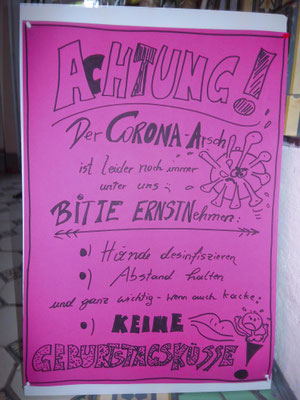 ACHTUNG!
Der CORONA-Arsch
ist leider noch immer
unter uns:
BITTE ERNSTNehmen:
•) Hände desinfizieren
•) Abstand halten
und ganz wichtig - wenn auch kacke:
•) KEINE
GEBURTSTAGSKÜSSE!